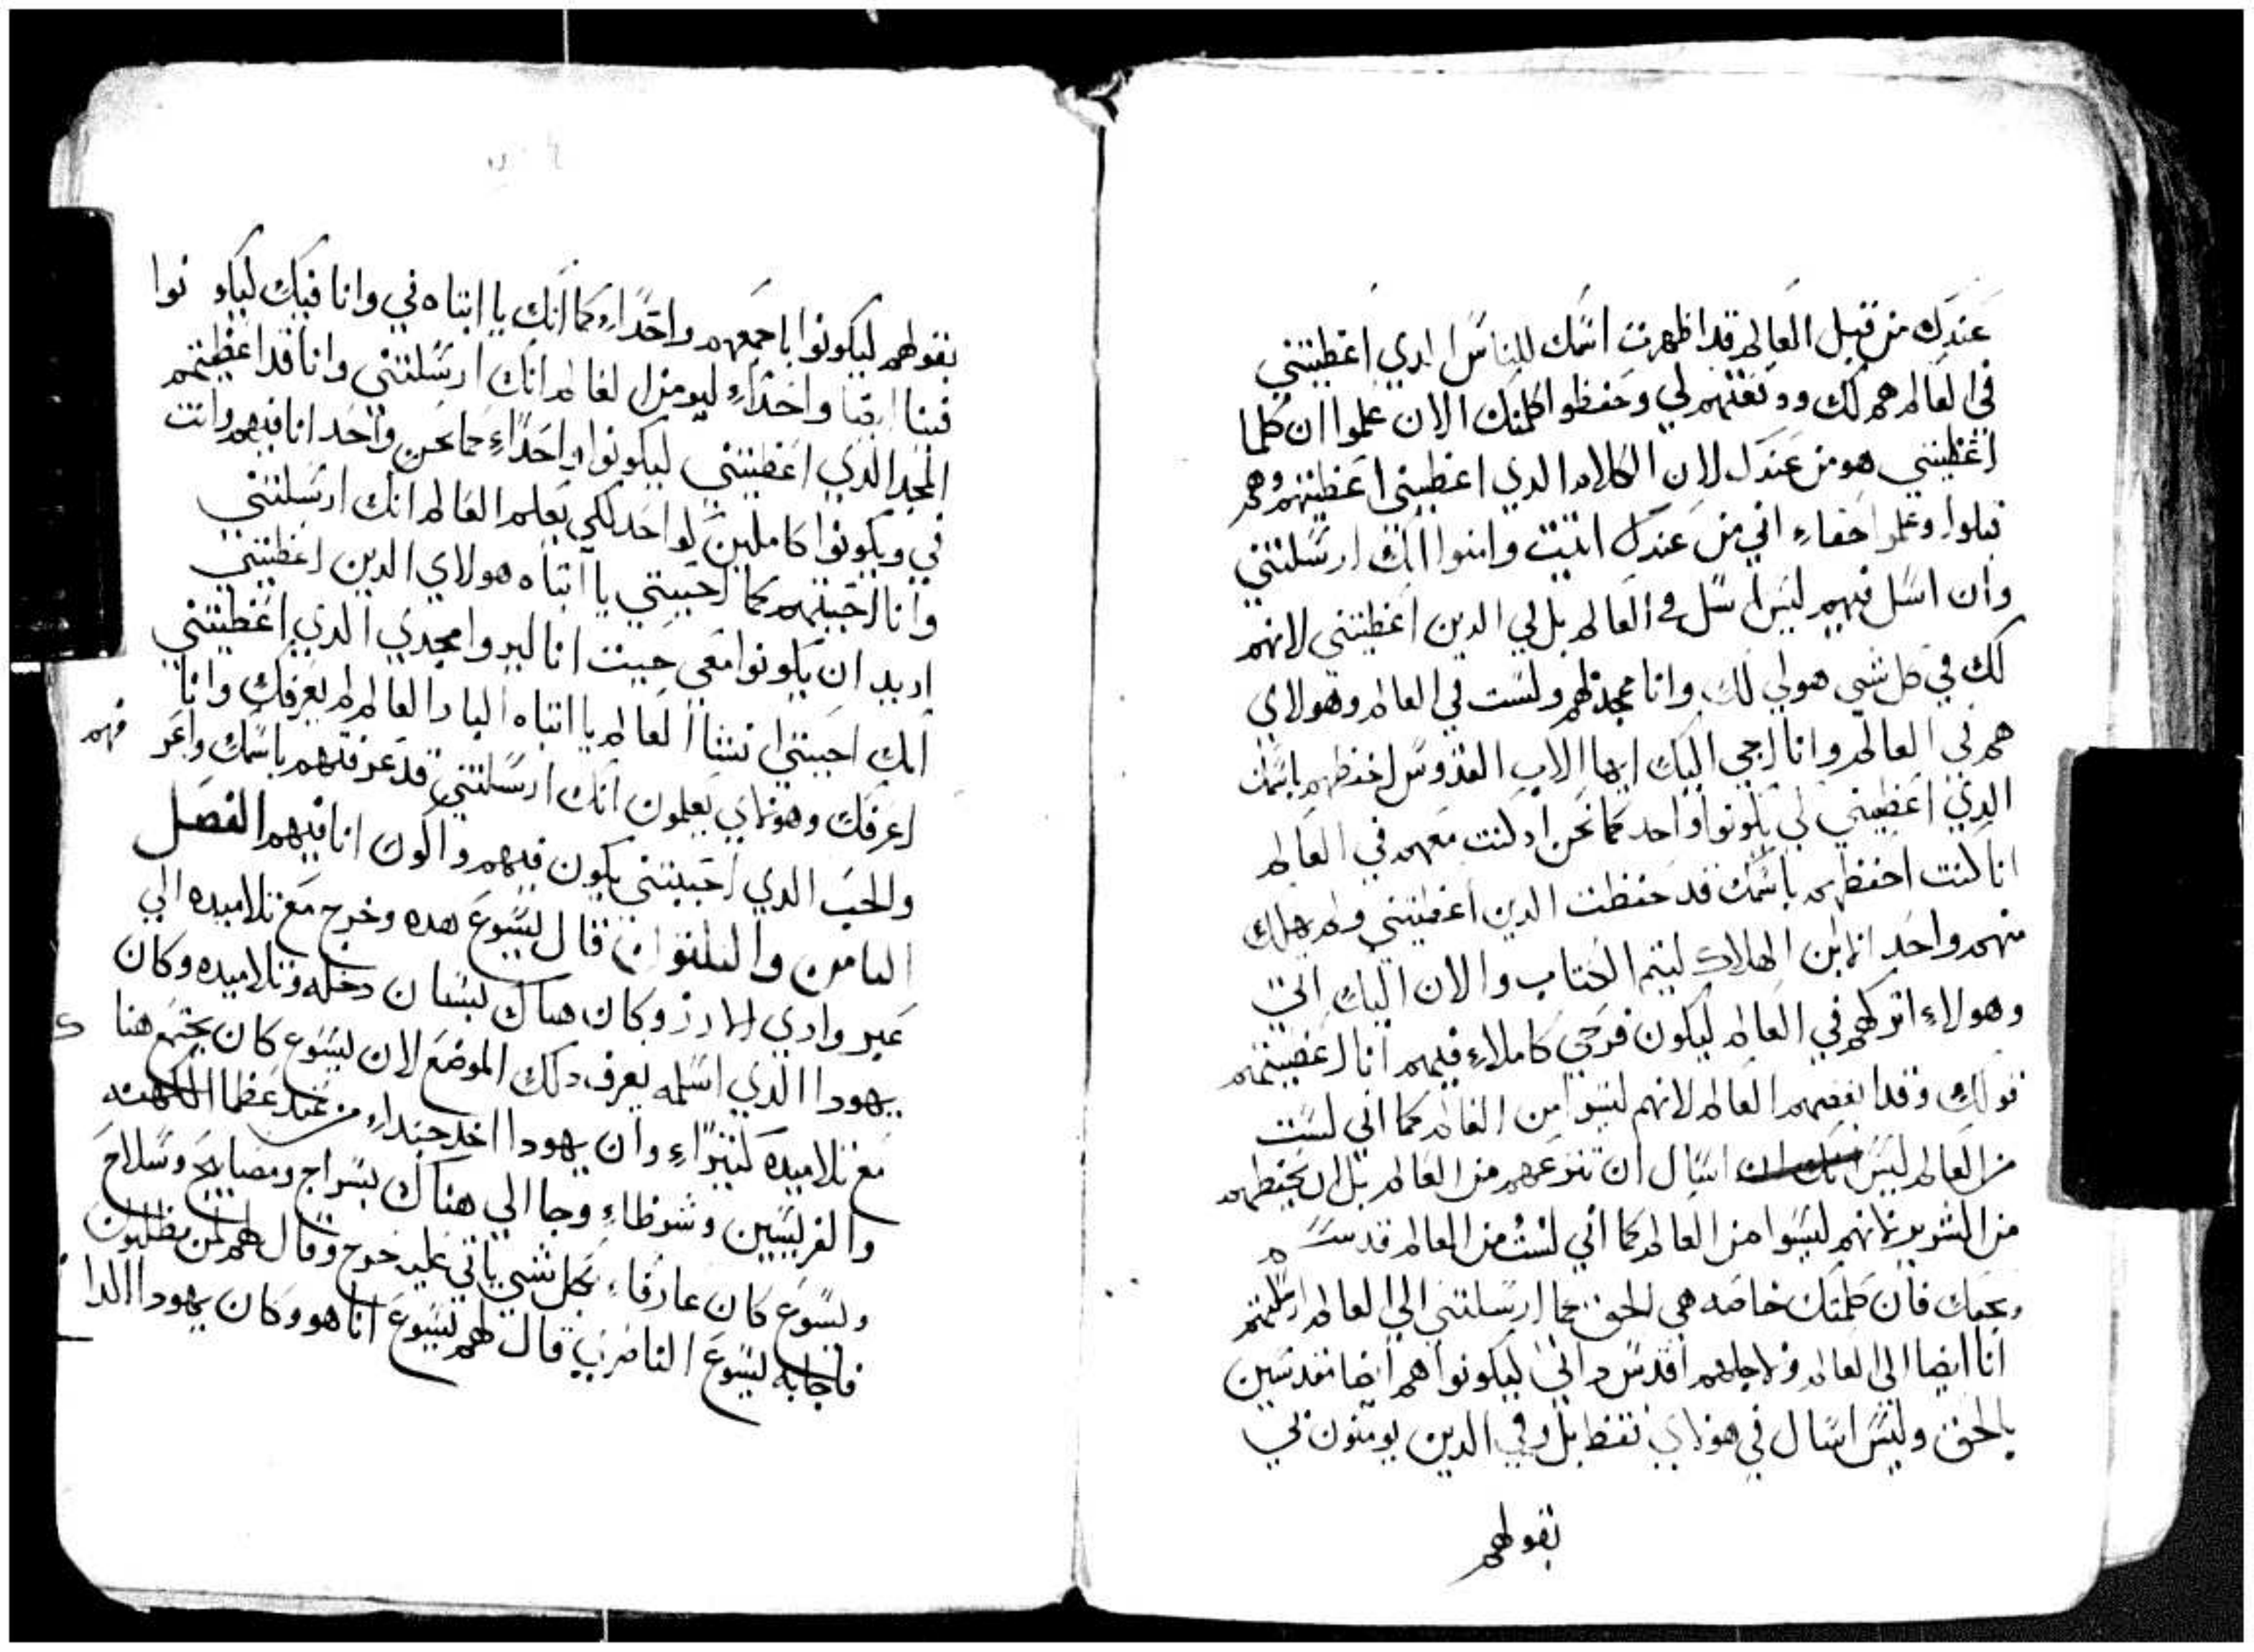 عندك من قبل العالم قد اظهرت اسمك للناس الدي اعطيتني
في العالم هم لك ودفعتهم لي وحفظوا كلمتك الان علموا ان كلما
اعطيتني هو من عندك لان الكلام الدي اعطيتني اعطيتهم وهم
قبلوا وعلموا حقاء اني من عندك اتيت وامنوا انك ارسلتني
وان اسل فيهم ليس اسل في العالم بل لي الدين اعطيتني لانهم
لك في كل شي هو لي لك وانا ممجد لهم ولست في العالم وهولاي
هم في العالم وانا اجي اليك ايها الاب القدوس احفظهم باسمك
الدي اعطيتني لي يكونوا واحد كما نحن اد كنت معهم في العالم
انا كنت احفظهم باسمك قد حفظت الدين اعطيتني ولم يهلك
منهم واحد الا ابن الهلاك ليتم الكتاب والان اليك اتي
وهولاء اتركهم في العالم ليكون فرحي كاملاء فيهم انا اعطيتهم
قولك وقد ابغضهم العالم لانهم ليسوا من العالم كما اني لست
من العالم ليس اسال ان تنزعهم من العالم بل ان تحفظهم
من الشرير لانهم ليسوا من العالم كما اني لست من العالم قدسهم
بحقك فان كلمتك خاصه هي الحق كما ارسلتني الي العالم ارسلتهم
انا ايضا الي العالم ولاجلهم اقدس داتي ليكونوا هم ايضا مقدسين
بالحق وليس اسال في هولاي فقط بل وفي الدين يومنون بي
بقولهم
بقولهم ليكونوا باجمعهم واحداء كما انك يا ابتاه في وانا فيك ليكو نوا
فينا ايضا واحداء ليومن العالم انك ارسلتني وانا قد اعطيتهم
المجد الدي اعطيتني ليكونوا واحداء كما نحن واحد انا فيهم وانت
في ويكونوا كاملين لواحد لكي يعلم العالم انك ارسلتني
وانا احببتهم كما احببتني يا ابتاه هولاي الدين اعطيتني
اريد ان يكونوا معي حيث انا ليروا مجدي الدي اعطيتني
انك احببتني انشا العالم يا ابتاه البار العالم لم يعرفك وانا
اعرفك وهولاي يعلمون انك ارسلتني قد عرفتهم باسمك واعر فهم
والحب الدي احببتني يكون فيهم واكون انا فيهم الفصل
الثامن والثلثون قال يسوع هده وخرج مع تلاميده الي
عبر وادي الارز وكان هناك بستان دخله وتلاميده وكان
يهودا الدي اسلمه يعرف دلك الموضع لان يسوع كان يجتمع هنا ك
مع تلاميده كثيراء وان يهودا اخد جنداء من عند عظما الكهنه
والفريسيين وشرطاء وجا الي هناك بسراج ومصابيح وسلاح
ويسوع كان عارفاء بكل شي ياتي عليه خرج وقال لهم لمن تطلبون
فاجابه يسوع الناصري قال لهم يسوع انا هو وكان يهودا الدا